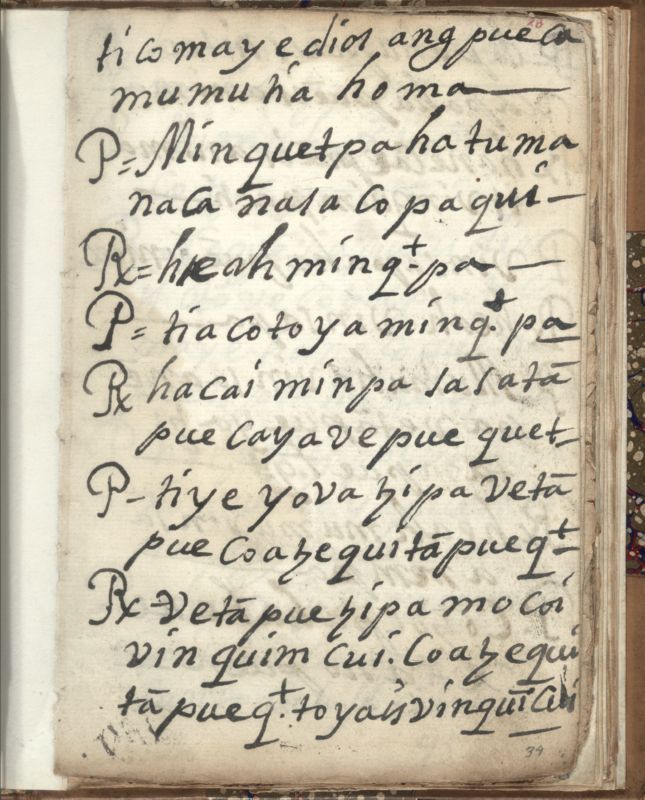 20
ti comay e dios ang pue ca
mumu tia homa —
P = Minquetpa hatuma
naca nasa copaqui —
Rx = heah minq.t pa —
P = tiacotoya minq.t pa
Rx hacai minpa sasatā
pue cayave pue quet —
P - tiye yova hipa vetā
pue coa hequitā pueq.t —
Rx - vetā pue hipa mocoi
vin quim cui. Coa hequi
tā pueq.t. toyais vinquīcui
34